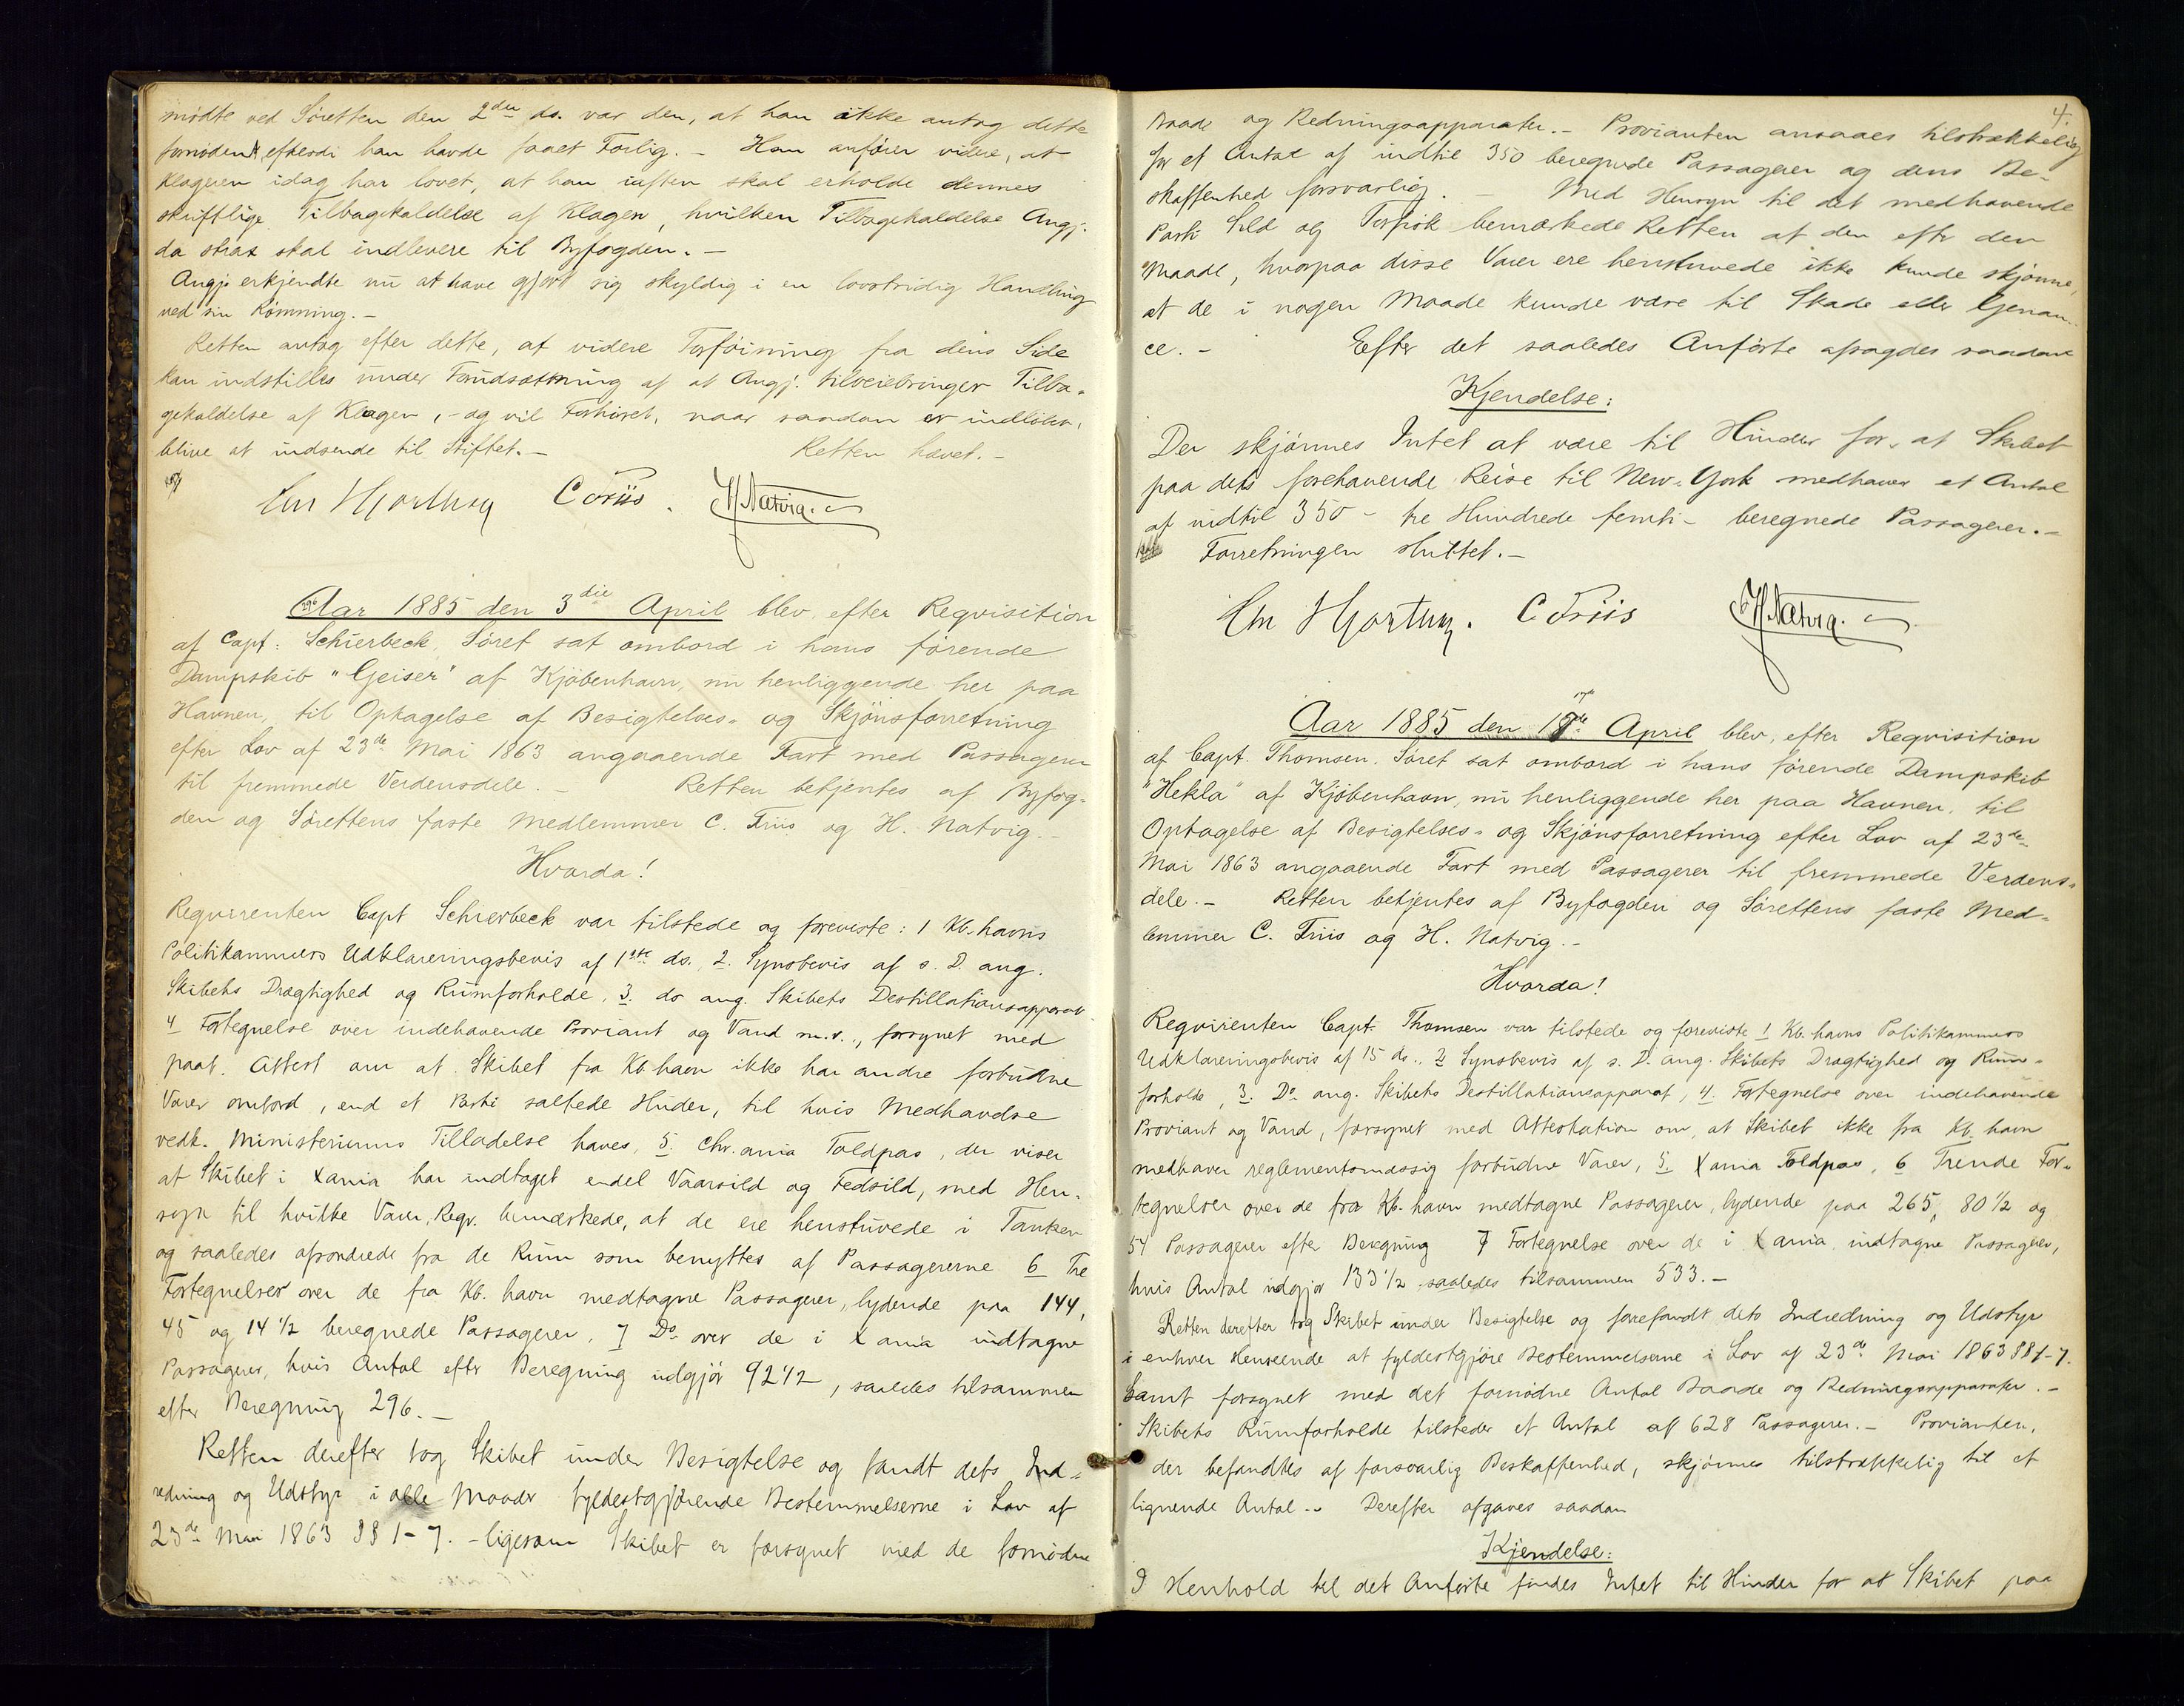 mødte ved Søretten den 2den ds. var den, at han ikke antog dette
fornødent, efterdi han havde faaet Forlig. – Han anfører videre, at
Klageren idag har lovet, at han iaften skal erholde dennes
skriftlige Tilbagekaldelse af Klagen, hvilken Tilbagekaldelse Angj.
da strax skal indlevere til Byfogden. –
Angj. erkjendte nu at have gjort sig skyldig i en lovstridig Handling
ved sin Rømning. –
Retten antog efter dette, at videre Forføining fra dens Side
kan indstilles under Forudsætning af at Angj. tilveiebringer Tilba-
gekaldelse af Klagen, – og vil Forhøret, naar saadan er indløben,
blive at indsende til Stiftet. – Retten hævet. –
Chr Hjorthuy CFriis. HNatvig.
Aar 1885 den 3die April blev, efter Reqvisition
af Capt: Schierbeck, Søret sat ombord i hans førende
Dampskib "Geiser" af Kjøbenhavn, nu henliggende her paa
Havnen, til Optagelse af Besigtelses- og Skjønsforretning
efter Lov af 23de Mai 1863 angaaende Fart med Passagerer
til fremmede Verdensdele. – Retten betjentes af Byfog-
den og Sørettens faste Medlemmer C. Friis og H. Natvig. –
Hvorda!
Reqvirenten Capt Schierbeck var tilstede og foreviste: 1 Kb.havns
Politikammers Udklareringsbevis af 1ste ds. 2. Synsbevis af s. D. ang.
Skibets Drægtighed og Rumforholde, 3. do ang. Skibets Destillationsapparat
4 Fortegnelse over indehavende Proviant og Vand m.v., forsynet med
paat. Attest om at Skibet fra Kb.havn ikke har andre forbudne
Varer ombord, end et Parti saltede Huder, til hvis Medhavelse
vedk. Ministeriums Tilladelse haves, 5. Chr.ania Toldpas, der viser
at Skibet i Xania har indtaget endel Vaarsild og Fedsild, med Hen-
syn til hvilke Varer, Reqv. bemærkede, at de ere henstuvede i Tanken
og saaledes afsondrede fra de Rum som benyttes af Passagererne 6 Tre
Fortegnelser over de fra Kb.havn medtagne Passagerer, lydende paa 144,
45 og 14 1/2 beregnede Passagerer, 7 Do over de i Xania indtagne
Passagerer, hvis Antal efter Beregning udgjør 92 1/2, saaledes tilsammen
efter Beregning 296. –
Retten derefter tog Skibet under Besigtelse og fandt dets Ind-
redning og Udstyr i alle Maader fyldestgjørende Bestemmelserne i Lov af
23de Mai 1863 §§ 1-7. – ligesom Skibet er forsynet med de fornødne
4.
Baade og Redningsapparater. – Provianten ansaaes tilstrækkelig
for et Antal af indtil 350 beregnede Passagerer og dens Be-
skaffenhed forsvarlig. – Med Hensyn til det medhavende
Parti Sild og Tørfisk bemærkede Retten at den efter den
Maade, hvorpaa disse Varer ere henstuvede ikke kunde skjønne,
at de i nogen Maade kunde være til Skade eller Genan-
ce. – Efter det saaledes Anførte afsagdes saadan
Kjendelse:
Der skjønnes Intet at være til Hinder for, at Skibet
paa dets forehavende Reise til New-York medhaver et Antal
af indtil 350 – tre Hundrede femti – beregnede Passagerer. –
Forretningen sluttet. –
Chr Hjorthuy. CFriis HNatvig.
Aar 1885 den 17de April blev, efter Reqvisition
af Capt. Thomsen, Søret sat ombord i hans førende Dampskib
"Hekla" af Kjøbenhavn, nu henliggende her paa Havnen, til
Optagelse af Besigtelses- og Skjønsforretning efter Lov af 23de
Mai 1863 angaaende Fart med Passagerer til fremmede Verdens-
dele. – Retten betjentes af Byfogden og Sørettens faste Med-
lemmer C. Friis og H. Natvig. –
Hvorda!
Reqvirenten Capt. Thomsen var tilstede og foreviste 1 Kb.havns Politikammers
Udklareringsbevis af 15 ds., 2 Synsbevis af s. D. ang. Skibets Drægtighed og Rum-
forholde, 3. Do ang. Skibets Destillationsapparat, 4. Fortegnelse over indehavende
Proviant og Vand, forsynet med Attestation om, at Skibet ikke fra Kb.havn
medhaver reglementsmæssig forbudne Varer, 5. Xania Toldpas, 6 Trende For-
tegnelser over de fra Kb.havn medtagne Passagerer, lydende paa 265, 80 1/2 og
54 Passagerer efter Beregning 7 Fortegnelse over de i Xania indtagne Passagerer,
hvis Antal udgjør 133 1/2 saaledes tilsammen 533. –
Retten derefter tog Skibet under Besigtelse og forefandt dets Indredning og Udstyr
i enhver Henseende at fyldestgjøre Bestemmelserne i Lov af 23de Mai 1863 §§ 1-7.
Samt forsynet med det fornødne Antal Baade og Redningsapparater. –
Skibets Rumforholde tilsteder et Antal af 628 Passagerer. – Provianten,
der befandtes af forsvarlig Beskaffenhed, skjønnes tilstrækkelig til et
lignende Antal. – Derefter afgaves saadan
Kjendelse:
I Henhold til det Anførte findes Intet til Hinder for at Skibet paa